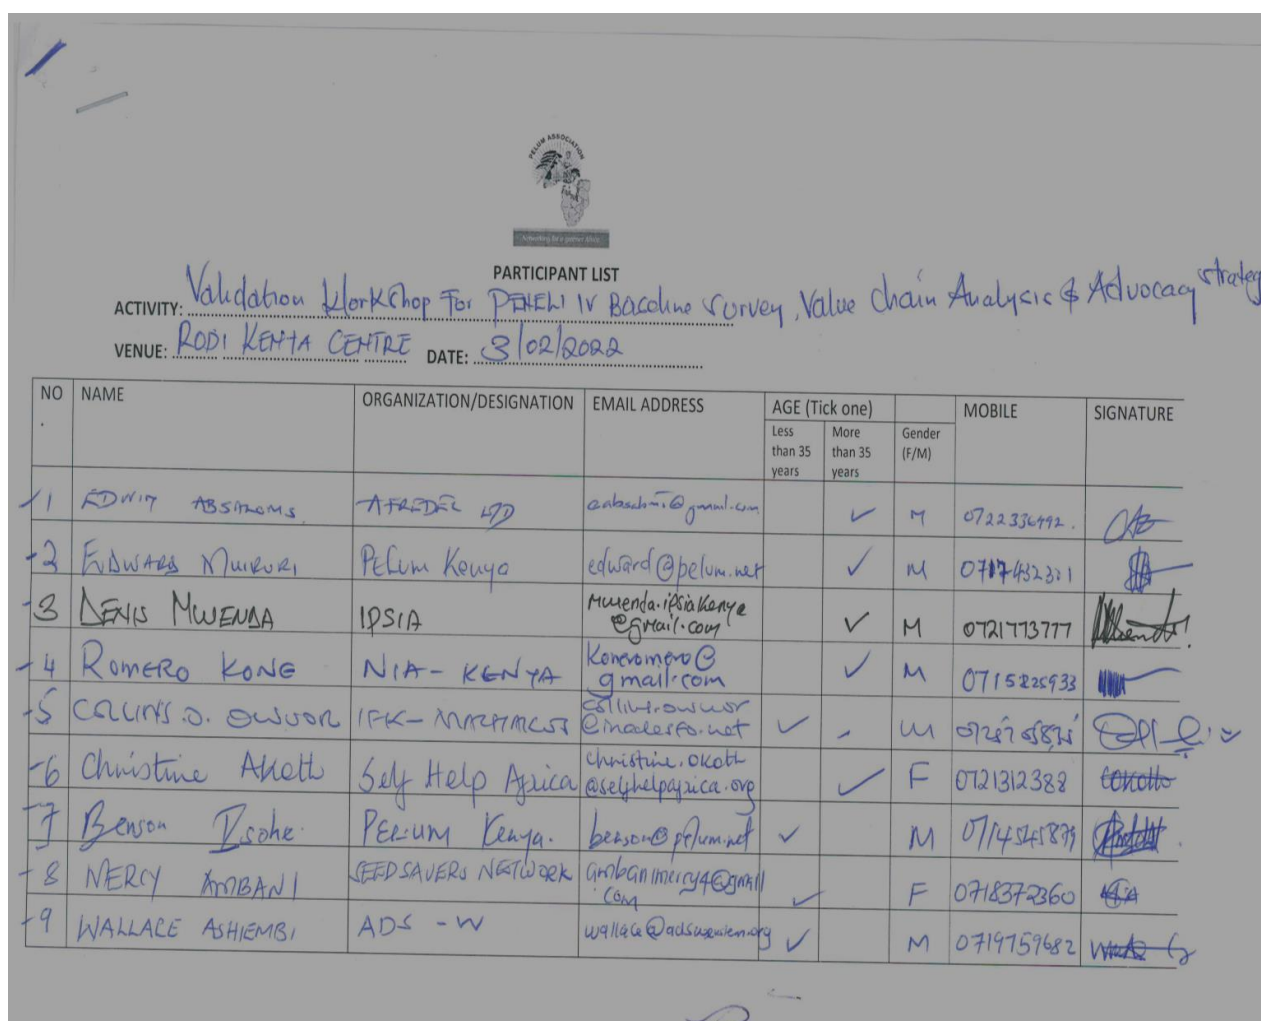 PELUM ASSOCIATION
PARTICIPANT LIST
ACTIVITY: Validation Workshop For PENELI IV Baseline Survey, Value Chain Analysis & Advocacy strategy
VENUE: RODI KENYA CENTRE DATE: 3/02/2022
NO NAME ORGANIZATION/DESIGNATION EMAIL ADDRESS AGE (Tick one) Gender (F/M) MOBILE SIGNATURE
Less than 35 years More than 35 years
1 EDWIN ABSALOMS AFREDEL LTD @gmail.com ✓ M 0722336492
2 EDWARD MUIRURI PELUM Kenya edward@pelum.net ✓ M 0717432321
3 DENIS MWENDA IPSIA Mwenda.ipsiakenya@gmail.com ✓ M 0721773777
4 ROMERO KONE NIA - KENYA Koneromero@gmail.com ✓ M 0715225933
5 COLLINS O. OWUOR IFK- MACHAKOS collins.owuor@inadesfo.net ✓ M
6 Christine Akoth Self Help Africa christine.okoth@selfhelpafrica.org ✓ F 0721312388
7 Benson PELUM Kenya. benson@pelum.net ✓ M 0714545879
8 MERCY AMBANI SEEDSAVERS NETWORK ambanimercy4@gmail.com ✓ F 0718372360
9 WALLACE ASHIEMBI ADS - W wallace@adswestern.org ✓ M 0719759682